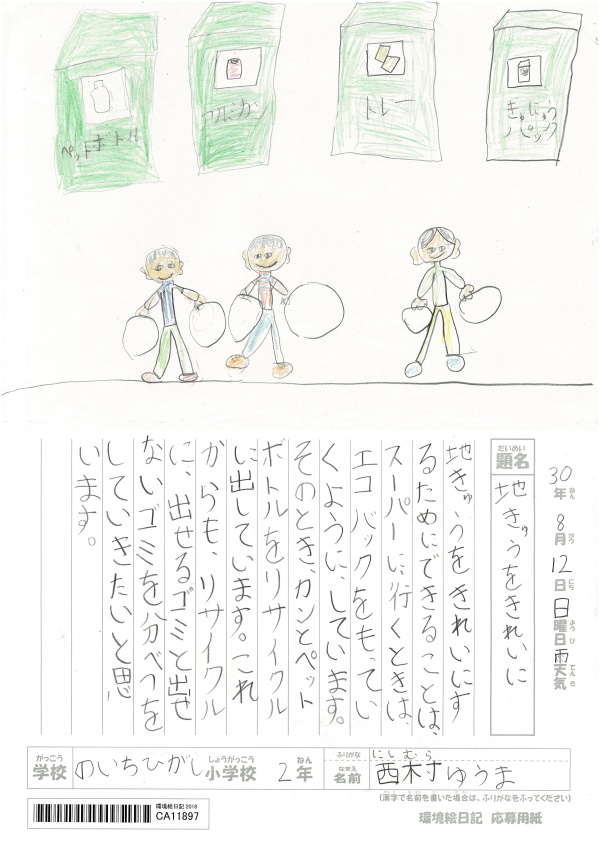 ペットボトル
アルミカン
トレー
ぎゅうにゅう
パック
30年8月12日日曜日雨天気
ねん がつ にち ようび てんき
だいめい
題名
地きゅうをきれいに
地きゅうをきれいにす
るためにできることは、
スーパーに、行くときは、
エコバックをもってい
くように、しています。
そのとき、カンとペット
ボトルをリサイクル
に出しています。これ
からも、リサイクル
に、出せるゴミと出せ
ないゴミを分べつを
していきたいと思
います。
がっこう
学校
のいちひがし
しょうがっこう
小学校
2年
ねん
ふりがな
にしむら
なまえ
名前
西村ゆうま
(漢字で名前を書いた場合は、ふりがなをふってください)
環境絵日記 2018
CA11897
環境絵日記 応募用紙